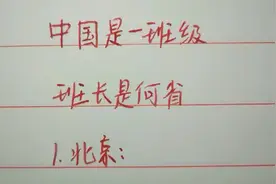 中国是一班级
班长是何省
1.北京：